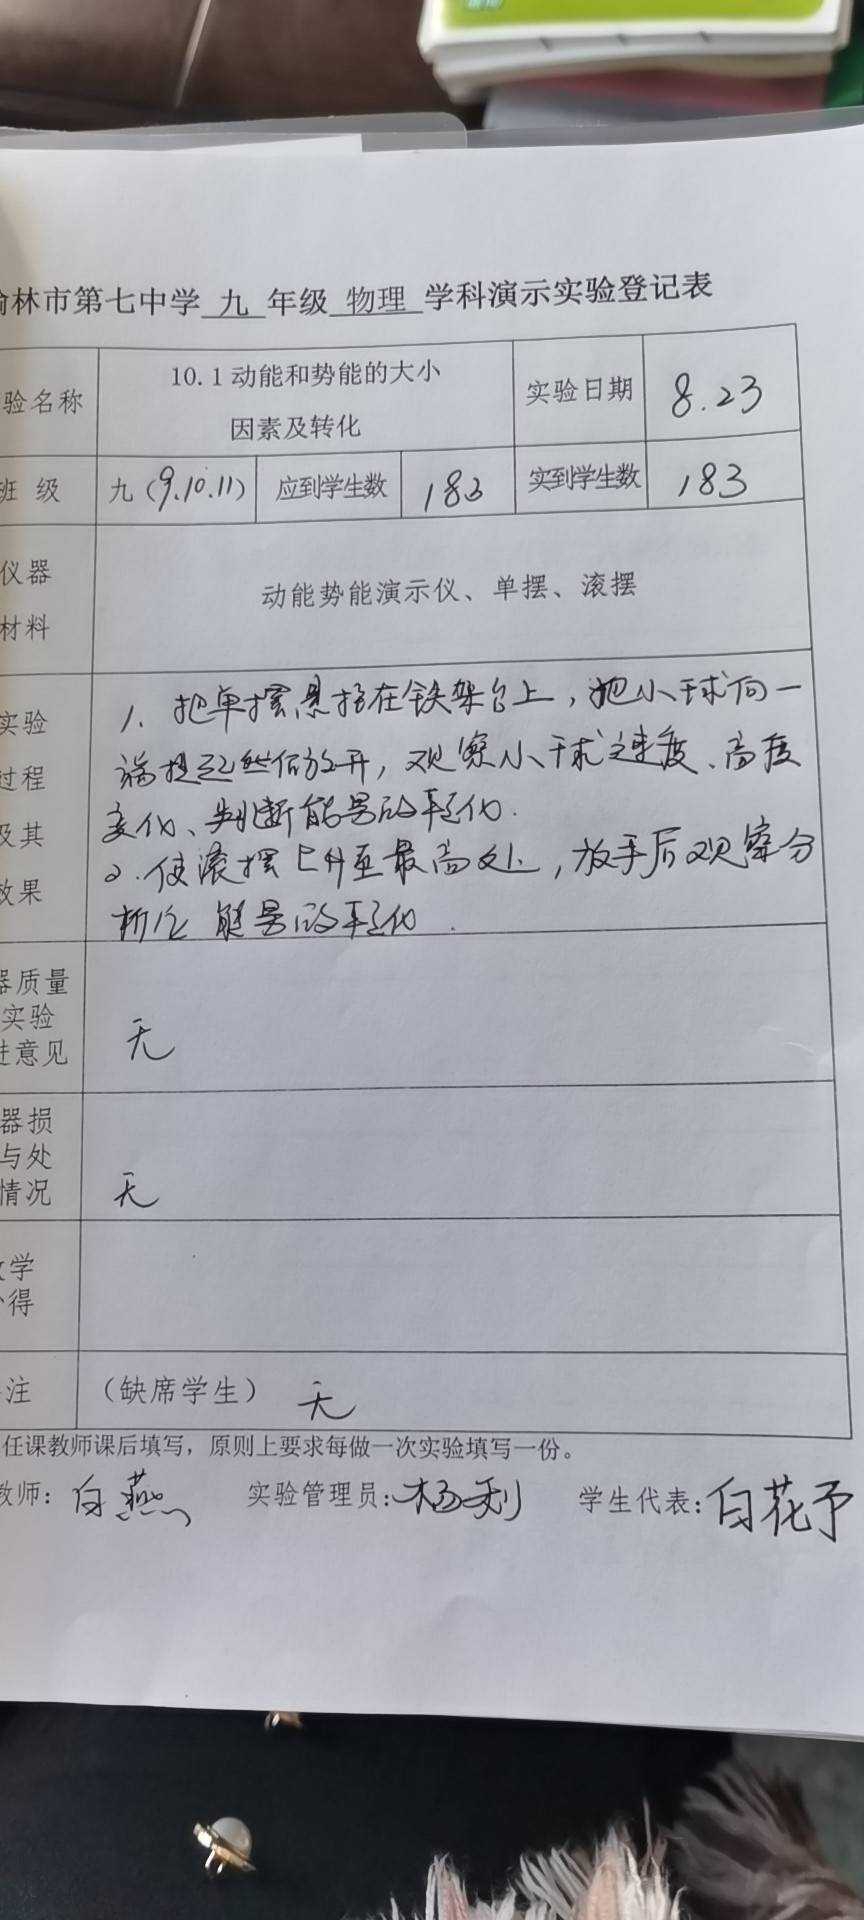 榆林市第七中学 九 年级 物理 学科演示实验登记表
验名称 10.1动能和势能的大小 因素及转化 实验日期 8.23
班 级 九(9.10.11) 应到学生数 183 实到学生数 183
仪器
材料
动能势能演示仪、单摆、滚摆
实验
过程
及其
效果
1. 把单摆悬挂在铁架台上，把小球向一
端提起然后放开，观察小球速度、高度
变化、判断能量的转化.
2.使滚摆上升至最高处，放手后观察分
析 能量的转化.
器质量
实验
进意见
无
器损
与处
情况
无
学
得
注 （缺席学生） 无
任课教师课后填写，原则上要求每做一次实验填写一份。
教师: 白燕 实验管理员: 杨利 学生代表: 白花予